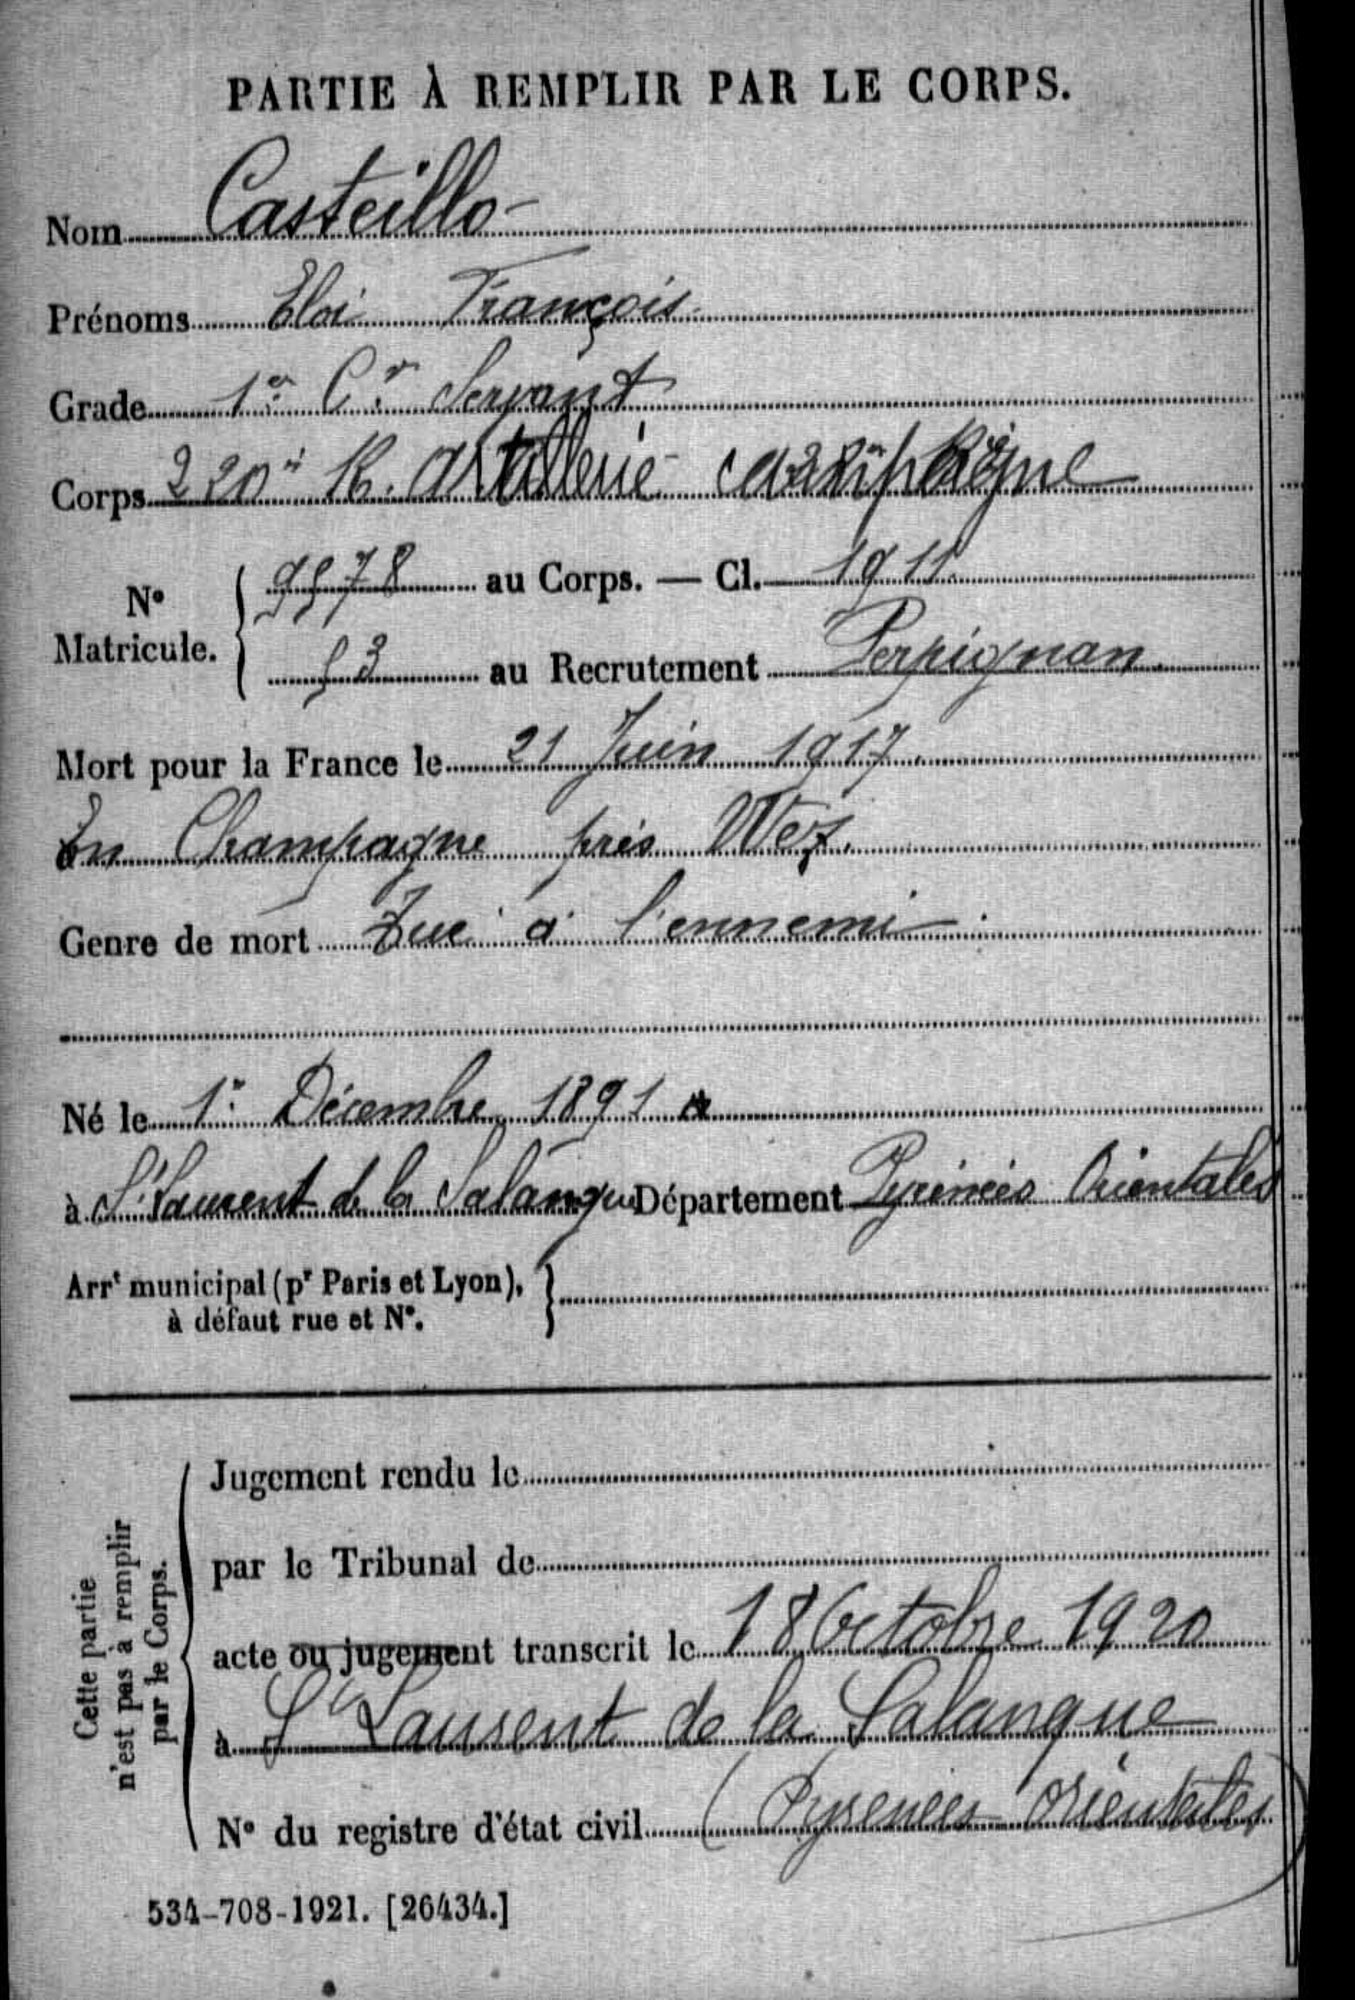 PARTIE À REMPLIR PAR LE CORPS.
Nom Casteillo
Prénoms Eloi François
Grade 1er Cr Servant
Corps 220e R. Artillerie campagne
No Matricule. 9578 au Corps. — Cl. 1911
53 au Recrutement Perpignan
Mort pour la France le 21 Juin 1917
En Champagne près Wez.
Genre de mort Tué à l'ennemi
Né le 1er Décembre 1891
à St Laurent de la Salanque Département Pyrénées Orientales
Arrt municipal (pr Paris et Lyon),
à défaut rue et No.
Cette partie
n'est pas à remplir
par le Corps.
Jugement rendu le
par le Tribunal de
acte ou jugement transcrit le 18 Octobre 1920
à St Laurent de la Salanque
No du registre d'état civil (Pyrenees orientales)
534-708-1921. [26434.]